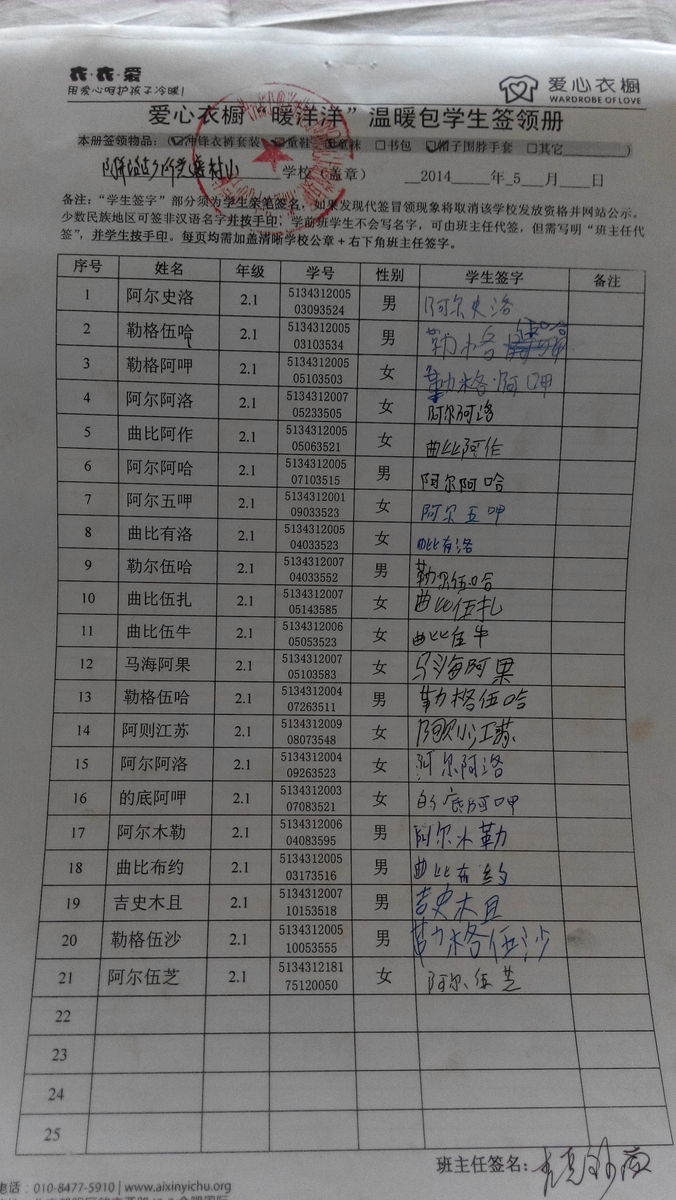 衣·衣·爱
用爱心呵护孩子冷暖!
爱心衣橱
WARDROBE OF LOVE
爱心衣橱“暖洋洋”温暖包学生签领册
本册签领物品:(☑冲锋衣裤套装 □童鞋 □童袜 □书包 ☑帽子围脖手套 □其它 )
学校(盖章) 2014 年 5 月 日
备注:“学生签字”部分须为学生亲笔签名,如果发现代签冒领现象将取消该学校发放资格并网站公示。
少数民族地区可签非汉语名字并按手印,学前班学生不会写名字,可由班主任代签,但需写明“班主任代
签”,并学生按手印。每页均需加盖清晰学校公章+右下角班主任签字。
序号 姓名 年级 学号 性别 学生签字 备注
1 阿尔史洛 2.1 5134312005 03093524 男 阿尔史洛
2 勒格伍哈 2.1 5134312005 03103534 男 勒格伍哈
3 勒格阿呷 2.1 5134312005 05103503 女 勒格阿呷
4 阿尔阿洛 2.1 5134312007 05233505 女 阿尔阿洛
5 曲比阿作 2.1 5134312005 05063521 女 曲比阿作
6 阿尔阿哈 2.1 5134312005 07103515 男 阿尔阿哈
7 阿尔五呷 2.1 5134312001 09033523 女 阿尔五呷
8 曲比有洛 2.1 5134312005 04033523 女 曲比有洛
9 勒尔伍哈 2.1 5134312007 04033552 男 勒尔伍哈
10 曲比伍扎 2.1 5134312007 05143585 女 曲比伍扎
11 曲比伍牛 2.1 5134312006 05053523 女 曲比伍牛
12 马海阿果 2.1 5134312007 05103583 女 马海阿果
13 勒格伍哈 2.1 5134312004 07263511 男 勒格伍哈
14 阿则江苏 2.1 5134312009 08073548 女 阿则江苏
15 阿尔阿洛 2.1 5134312004 09263523 女 阿尔阿洛
16 的底阿呷 2.1 5134312003 07083521 女 的底阿呷
17 阿尔木勒 2.1 5134312006 04083595 男 阿尔木勒
18 曲比布约 2.1 5134312005 03173516 男 曲比布约
19 吉史木且 2.1 5134312007 10153518 男 吉史木且
20 勒格伍沙 2.1 5134312005 10053555 男 勒格伍沙
21 阿尔伍芝 2.1 5134312181 75120050 女 阿尔伍芝
22
23
24
25
班主任签名:
电话:010-8477-5910 | www.aixinyichu.org